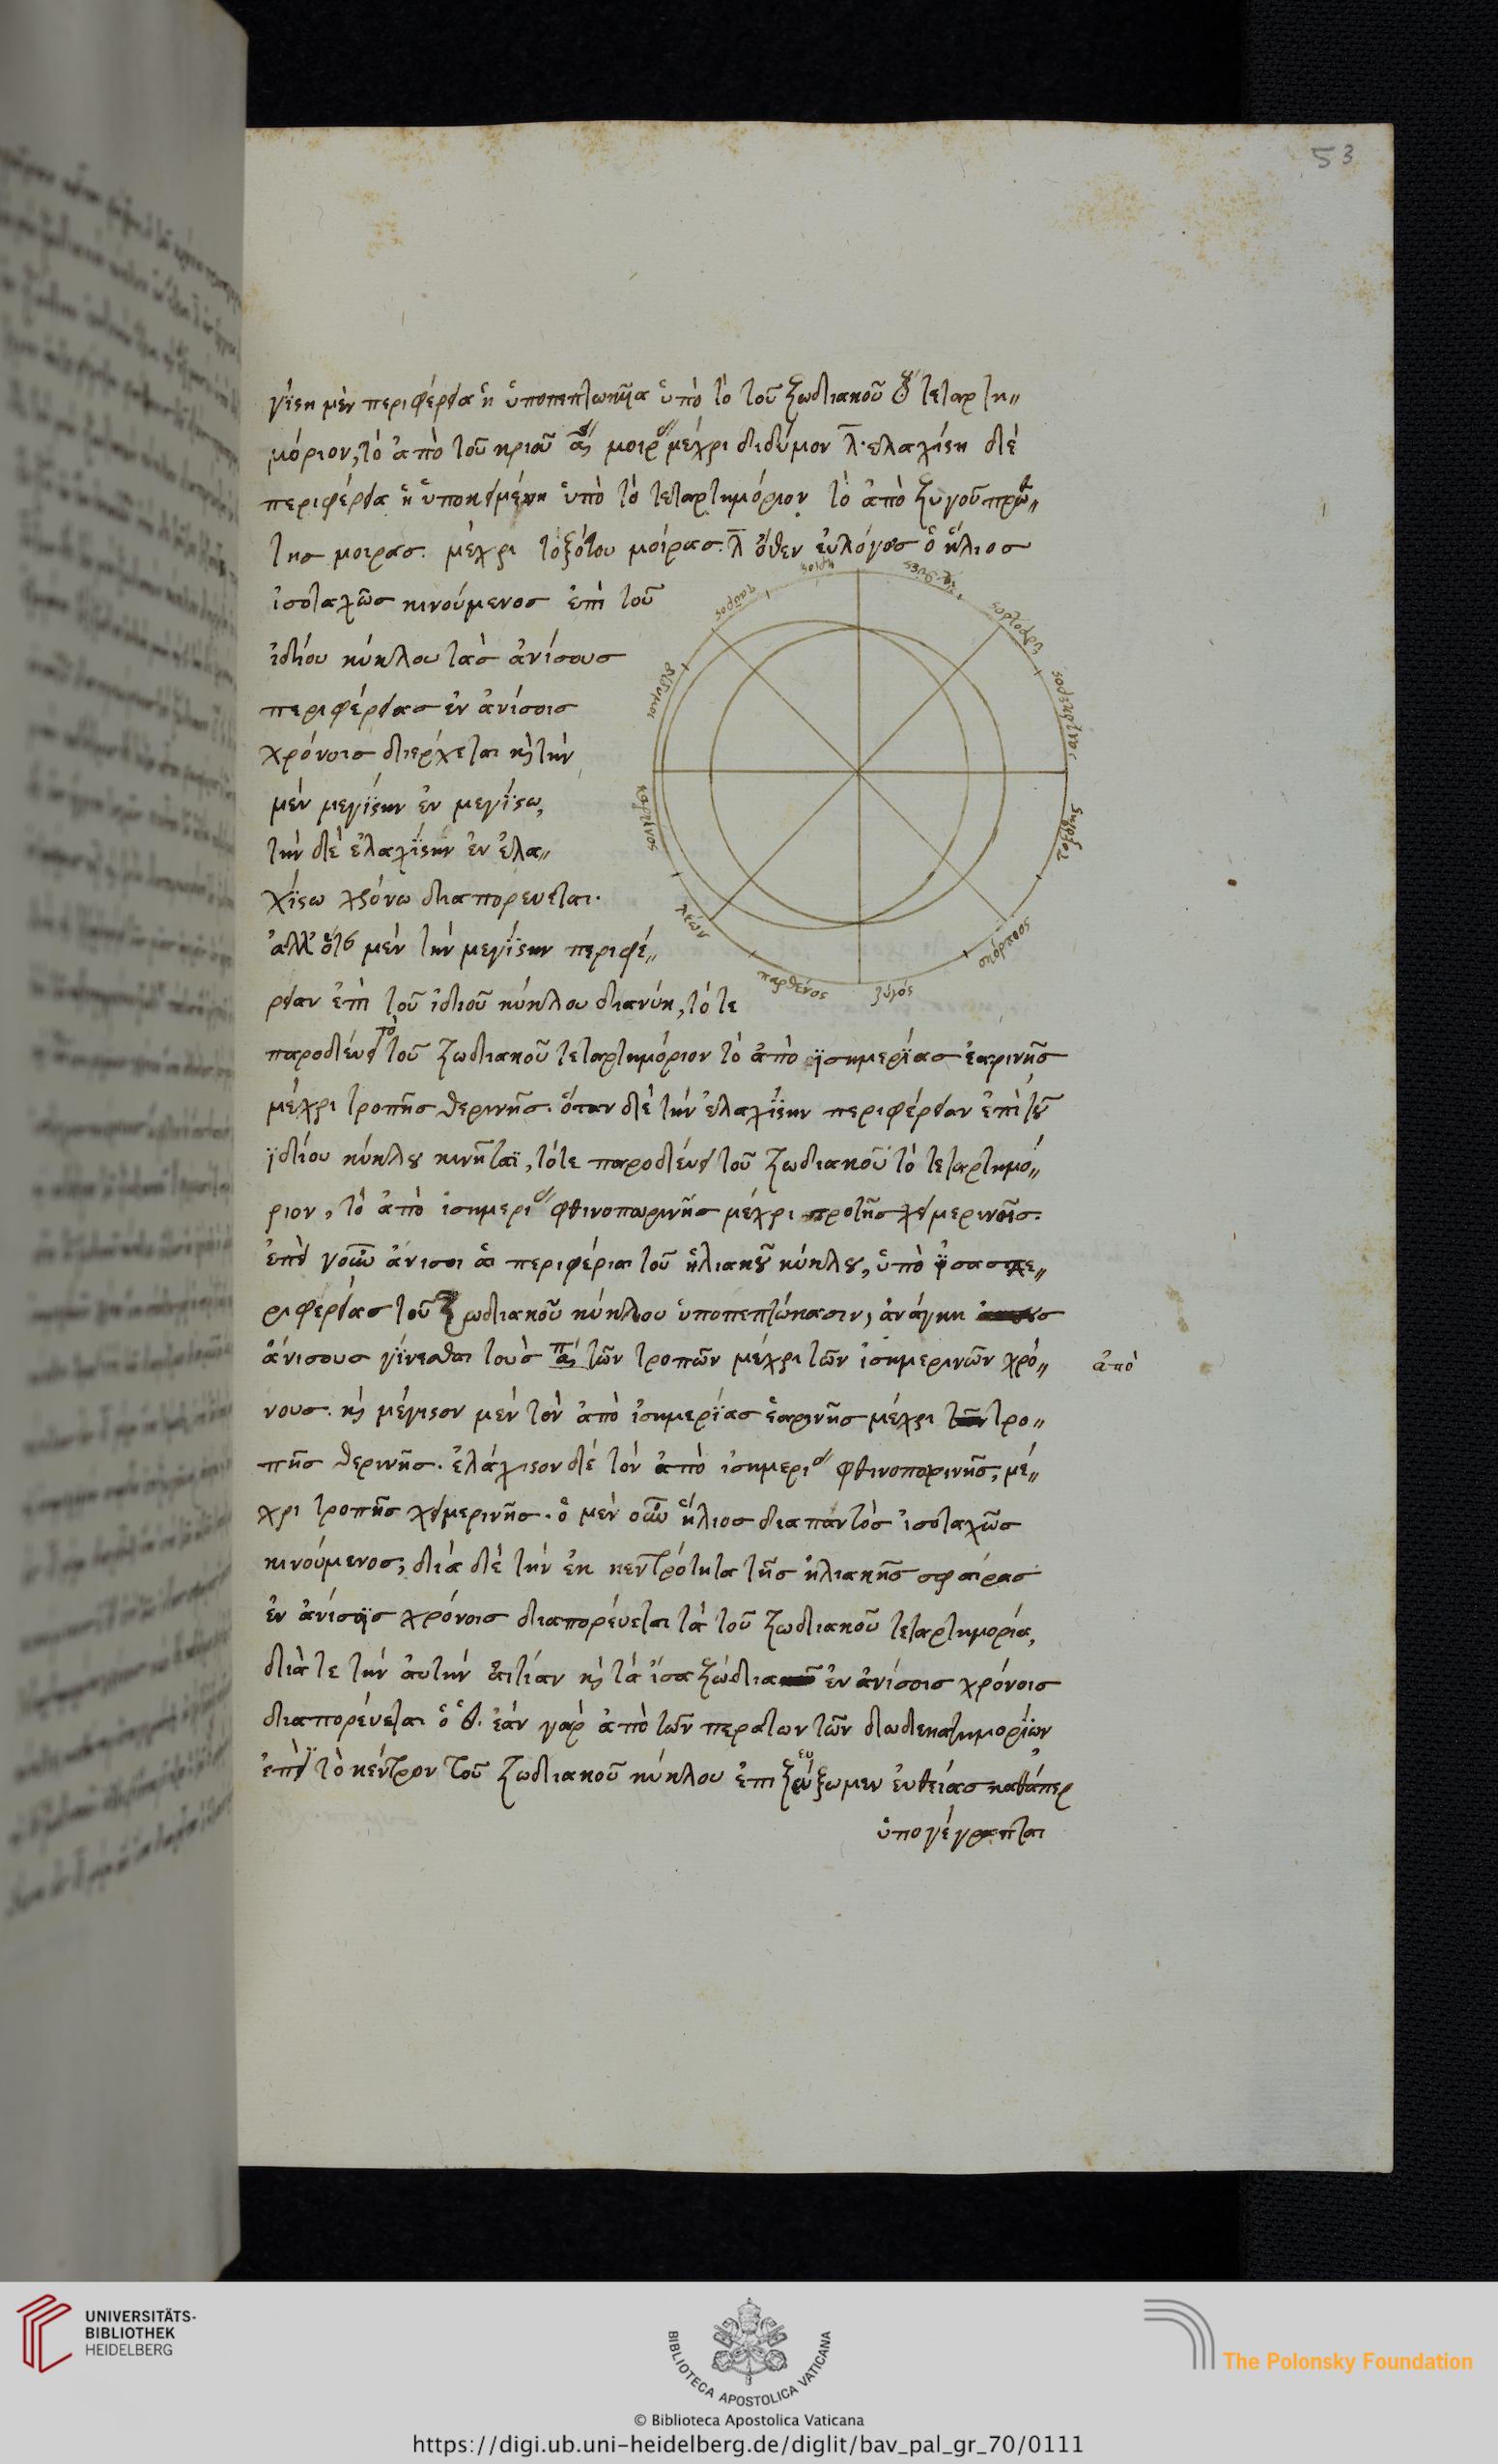 53
γίστη μὲν περιφέρεια ἡ ὑποπεπτωκυῖα ὑπὸ τὸ τοῦ ζωδιακοῦ τεταρτη〃
μόριον, τὸ ἀπὸ τοῦ κριοῦ μοίρ μέχρι διδύμον λ̅. ἐλαχίστη δὲ
περιφέρεια ἡ ὑποκειμένη ὑπὸ τὸ τεταρτημόριον τὸ ἀπὸ ζυγοῦ πρώ〃
της μοιρασ. μέχρι τοξότου μοίρασ. λ̅ ὅθεν εὐλόγως ὁ ἥλιος
ἰσοταχῶς κινούμενος ἐπὶ τοῦ
ἰδίου κύκλου τὰς ἀνίσους
περιφέρειας ἐν ἀνίσοις
χρόνοις διέρχεται κὶ τὴν
μὲν μεγίστην ἐν μεγίστω,
τὴν δὲ ἐλαχίστην ἐν ἐλα〃
χίστω χρόνω διαπορευεται.
ἀλλ' ὅτε μὲν τὴν μεγίστην περιφέ〃
ρειαν ἐπὶ τοῦ ἰδιοῦ κύκλου διανύη, τότε
παροδεύει τὸ τοῦ ζωδιακοῦ τεταρτημόριον τὸ ἀπὸ ἰσημερίας ἐαρινῆς
μέχρι τροπῆς θερινῆς. ὅταν δὲ τὴν ἐλαχίστην περιφέρειαν ἐπὶ τοῦ
ἰδίου κύκλου κινῆται, τότε παροδεύει τοῦ ζωδιακοῦ τὸ τεταρτημό〃
ριον, τὸ ἀπὸ ἰσημερι φθινοπωρινῆς μέχρι προτῆς χειμερινῆς.
ἐπεὶ γοῦν ἄνισοι αἱ περιφέριαι τοῦ ἡλιακοῦ κύκλου, ὑπὸ ἴσας πε〃
ριφερείας τοῦ ζωδιακοῦ κύκλου ὑποπεπτώκασιν, ἀνάγκη
ἀνίσους γίνεσθαι τοὺς τῶν τροπῶν μέχρι τῶν ἰσημερινῶν χρό〃
ἀπὸ
νους. κὶ μέγιστον μὲν τὸν ἀπὸ ἰσημερίας ἐαρινῆς μέχρι τρο〃
πῆς θερινῆς. ἐλάχιστον δὲ τὸν ἀπὸ ἰσημερι φθινοπορινῆς, μέ〃
χρι τροπῆς χειμερινῆς. ὁ μὲν οὖν ἥλιος διαπάντὸς ἰσοταχῶς
κινούμενος, διὰ δὲ τὴν ἐκ κεντρότητα τῆς ἡλιακῆς σφαίρας
ἐν ἀνίσοις χρόνοις διαπορεύεται τὰ τοῦ ζωδιακοῦ τεταρτημορία,
διὰ τε τὴν ἀυτὴν αἰτίαν κὶ τὰ ἴσα ζώδια ἐν ἀνίσοις χρόνοις
διαπορεύεται ὁ ἐὰν γαρ ἀπὸ τῶν περατων τῶν δωδεκατημορίων
ἐπεὶ τὸ κέντρον τοῦ ζωδιακοῦ κύκλου ἐπιζεύξωμεν ἐυθείας καθάπερ
ὑπογέγραπται
κριός
ταῦρος
δίδυμοι
καρκίνος
λέων
παρθένος
ζυγός
σκόρπιος
τοξότης
αἰγόκερος
ὑδροχόος
ἰχθύες
UNIVERSITÄTS-
BIBLIOTHEK
HEIDELBERG
BIBLIOTECA APOSTOLICA VATICANA
The Polonsky Foundation
© Biblioteca Apostolica Vaticana
https://digi.ub.uni-heidelberg.de/diglit/bav_pal_gr_70/0111